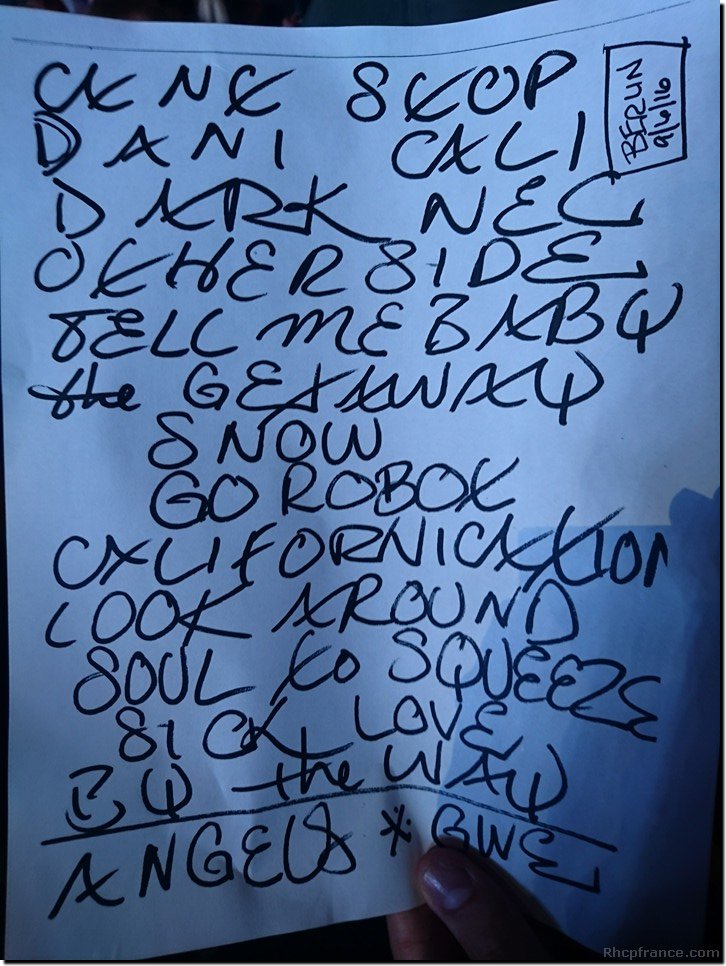 CXNX SXOP
BERLIN
9/6/16
DANI CALI
DARK NEC
OTHERSIDE
TELL ME BABY
the GETAWAY
SNOW
GO ROBOT
CALIFORNICATION
LOOK AROUND
SOUL to SQUEEZE
SICK LOVE
BY the WAY
ANGELS * GWE
Rhcpfrance.com